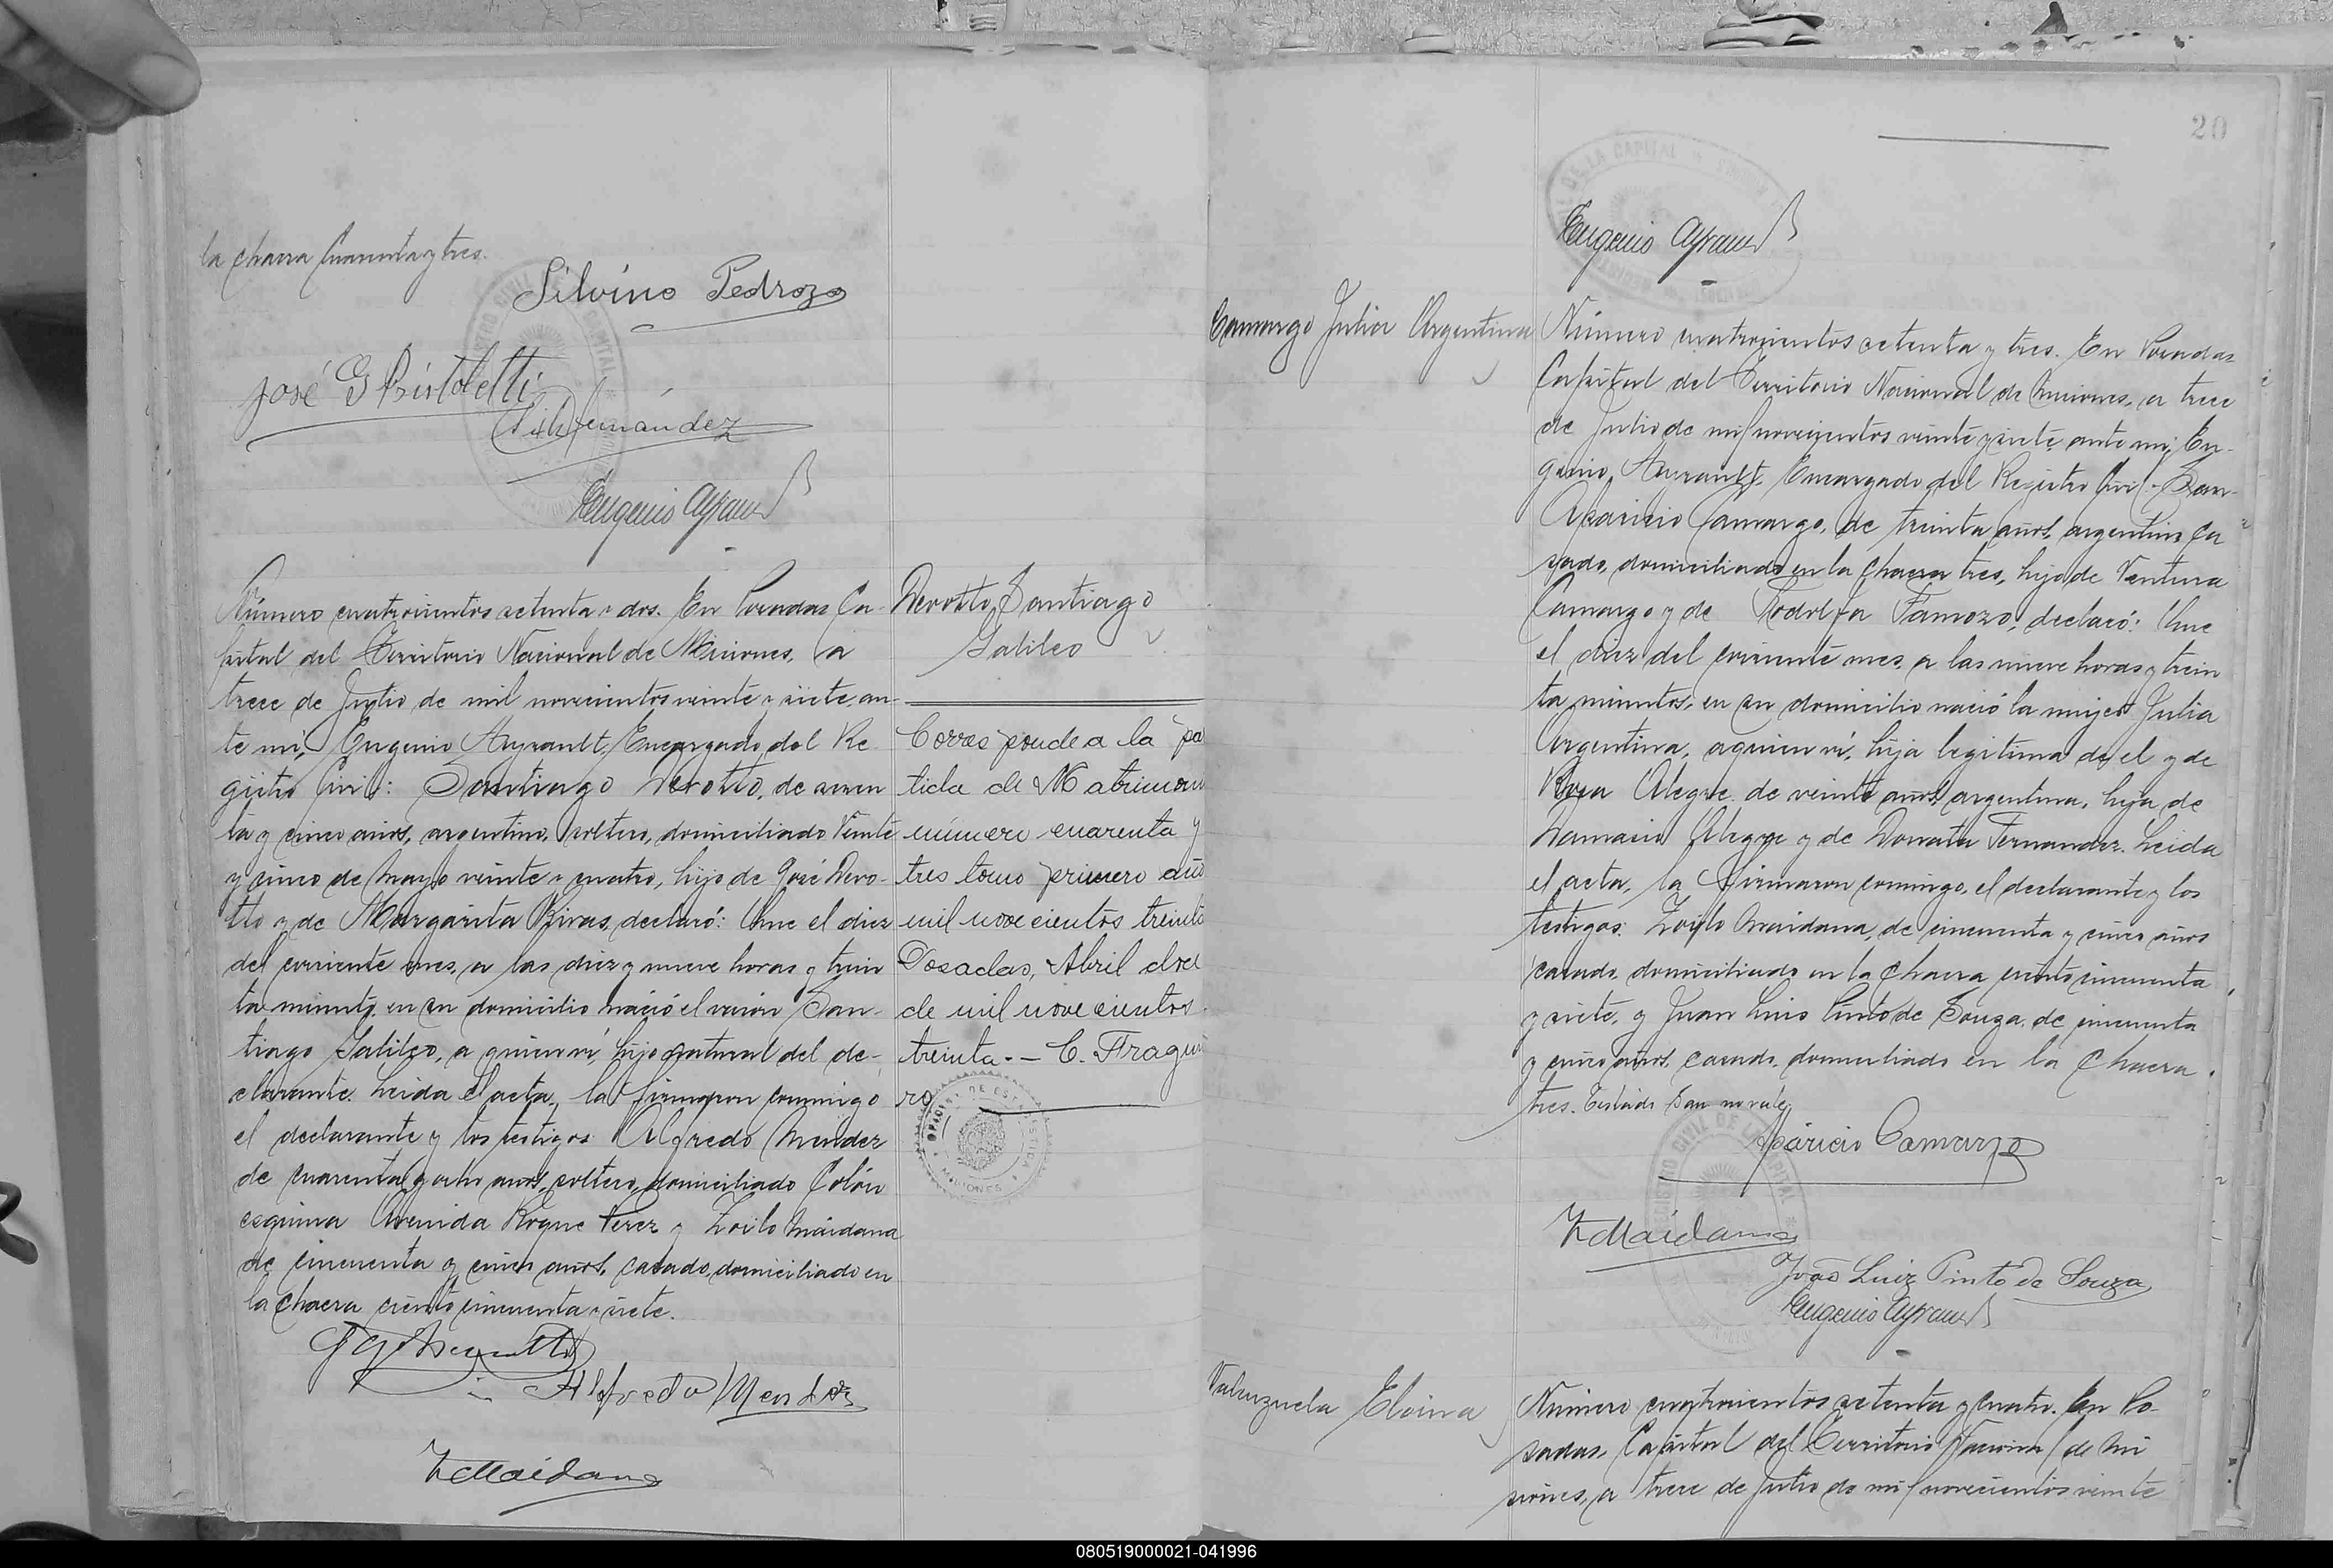 la chacra cuarenta y tres.
Silvino Pedrozo
José G Bistoletti
Fernández
Eugenio Ayrault
Número cuatrocientos setenta y dos. En Posadas Ca-
pital del Territorio Nacional de Misiones, a
trece de Julio de mil novecientos veinte y siete, an-
te mí, Eugenio Ayrault, Encargado del Re-
gistro Civil: Santiago Devotto, de
ta y cinco años, argentino, soltero, domiciliado Veinte
y cinco de Mayo veinte y cuatro, hijo de José Devo-
tto y de Margarita Rivas, declaró: Que el diez
del corriente mes, a las diez y nueve horas y trein
ta minutos, en su domicilio nació el varón San-
tiago Galileo, a quien ví, hijo natural del de-
clarante. Leida el acta, la firmaron conmigo
el declarante y los testigos: Alfredo Mendez
de cuarenta y ocho años, soltero, domiciliado Colón
esquina Avenida Roque Perez y Zoilo Maidana
de cincuenta y cinco años, casado, domiciliado en
la chacra ciento cincuenta y siete.
Alfredo Mendez
Z Maidana
Devotto Santiago
Galileo
Corresponde a la pa
tida de Matrimon
número cuarenta y
tres tomo primero año
mil novecientos treinta
Posadas, Abril
de mil novecientos
treinta. — C. Fragu
ro
OFICINA DE ESTADISTICA
MISIONES
20
DE LA CAPITAL
Eugenio Ayrault
Camargo Julia Argentina
Número cuatrocientos setenta y tres. En Posadas
Capital del Territorio Nacional de Misiones, a trece
de Julio de mil novecientos veinte y siete, ante mi, Eu-
genio Ayrault, Encargado del Registro Civil: San
Aparicio Camargo, de treinta años, argentino, ca
sado, domiciliado en la chacra tres, hijo de Ventura
Camargo y de Rodolfa Famozo, declaró: Que
el diez del corriente mes, a las nueve horas y trein
ta minutos, en su domicilio nació la mujer Julia
Argentina, a quien ví, hija legitima de el y de
Rosa Alegre, de veinte años, argentina, hija de
Damacio Alegre y de Donata Fernandez. Leida
el acta, la firmaron conmigo, el declarante y los
testigos: Zoilo Maidana, de cincuenta y cinco años
casado, domiciliado en la chacra ciento cincuenta
y siete, y Juan Luis Pinto de Souza, de cincuenta
y cinco años, casado, domiciliado en la chacra
tres. Testado San no vale
Aparicio Camargo
Z Maidana
João Luiz Pinto de Souza
Eugenio Ayrault
Valenzuela Elvina
Número cuatrocientos setenta y cuatro. En Po-
sadas, Capital del Territorio Nacional de Mi
siones, a trece de Julio de mil novecientos veinte
080519000021-041996